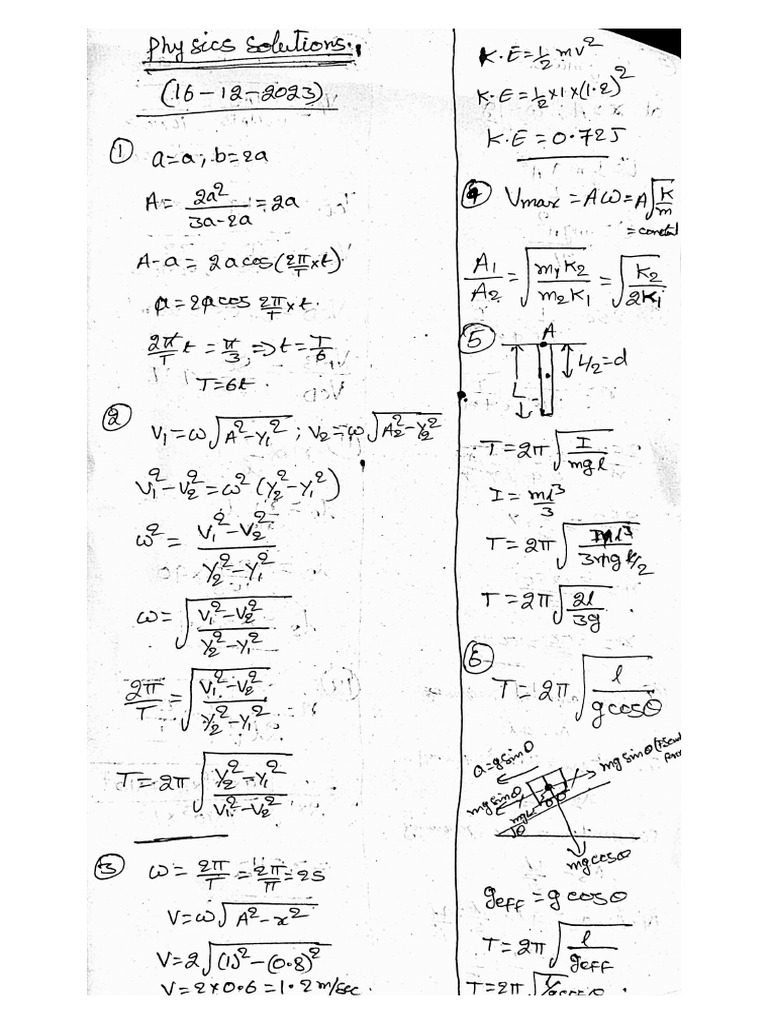 Physics Solutions.
(16-12-2023)
① a=a; b=2a
A = 2a²/3a-2a = 2a
A-a = 2acos(2π/T ×t)
a = 2acos 2π/T ×t.
2π/T t = π/3 ⇒ t = T/6
T=6t.
② V₁=ω√(A²-Y₁²) ; V₂=ω√(A₂²-Y₂²)
V₁²-V₂²=ω²(Y₂²-Y₁²)
ω² = V₁²-V₂²/Y₂²-Y₁²
ω = √(V₁²-V₂²/Y₂²-Y₁²)
2π/T = √(V₁²-V₂²/Y₂²-Y₁²)
T=2π√(Y₂²-Y₁²/V₁²-V₂²)
③ ω = 2π/T = 2π/π = 2s
V=ω√(A²-x²)
V=2√((1)²-(0.8)²)
V=2×0.6=1.2m/sec.
K.E=½mv²
K.E=½×1×(1.2)²
K.E=0.72J
④ Vmax = Aω = A√(K/m)
= constant
A₁/A₂ = √(m₁K₂/m₂K₁) = √(K₂/2K₁)
⑤ A
L
L/2=d
T=2π√(I/mgl)
I = ml³/3
T=2π√(ml³/3mgl/2)
T=2π√(2l/3g).
⑥ T=2π√(l/gcosθ)
a=gsinθ
mgsinθ
mgsinθ
θ
mgcosθ
geff = gcosθ
T=2π√(l/geff)
T=2π√(l/gcosθ).